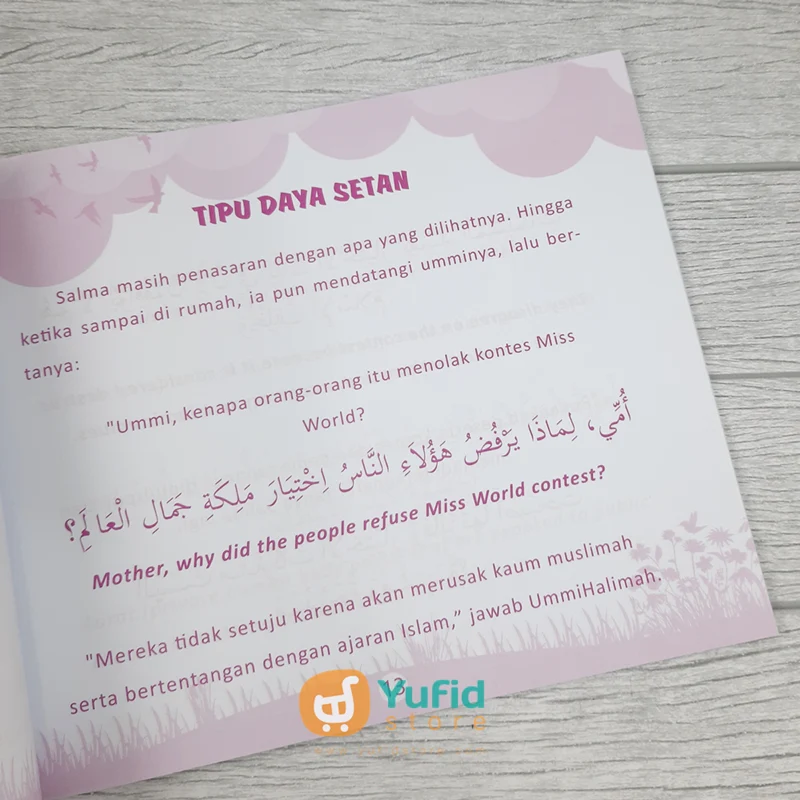 TIPU DAYA SETAN
Salma masih penasaran dengan apa yang dilihatnya. Hingga
ketika sampai di rumah, ia pun mendatangi umminya, lalu ber-
tanya:
"Ummi, kenapa orang-orang itu menolak kontes Miss
World?
أُمِّي، لِمَاذَا يَرْفُضُ هَؤُلَاءِ النَّاسُ اِخْتِيَارَ مَلِكَةِ جَمَالِ الْعَالَمِ؟
Mother, why did the people refuse Miss World contest?
"Mereka tidak setuju karena akan merusak kaum muslimah
serta bertentangan dengan ajaran Islam,” jawab UmmiHalimah.
13
Yufid
store